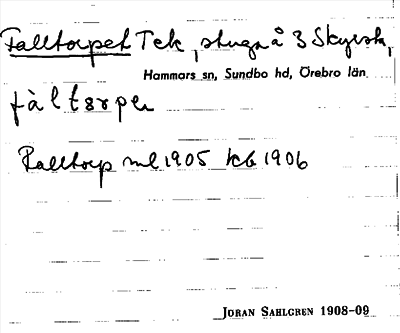 Falltorpet Tek, stuga å 3 Skyrsta,
Hammars sn, Sundbo hd, Örebro län
fàltɜrpɘ
Ralltorp ml 1905 kb 1906
JÖRAN SAHLGREN 1908-09